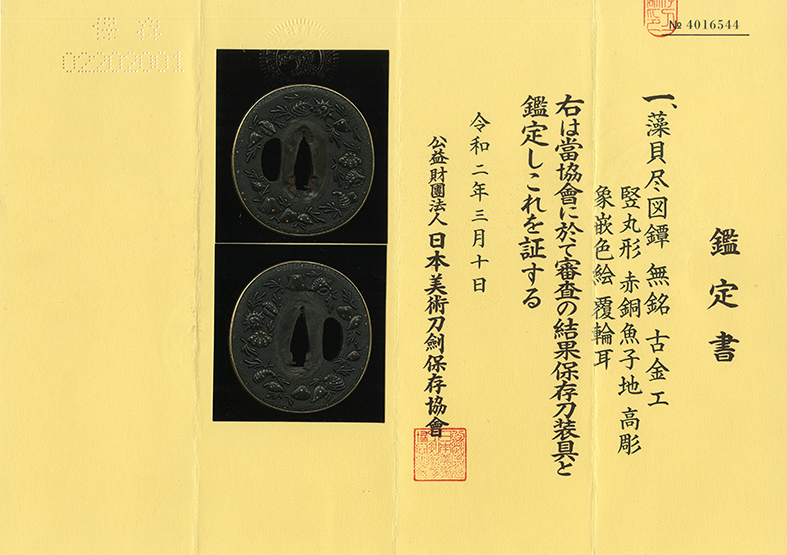 № 4016544
鑑定書
一、藻貝尽図鐔 無銘 古金工
竪丸形 赤銅魚子地 高彫
象嵌色絵 覆輪耳
右は當協會に於て審査の結果保存刀装具と
鑑定しこれを証する
令和二年三月十日
公益財團法人 日本美術刀劍保存協會
保存
02202001